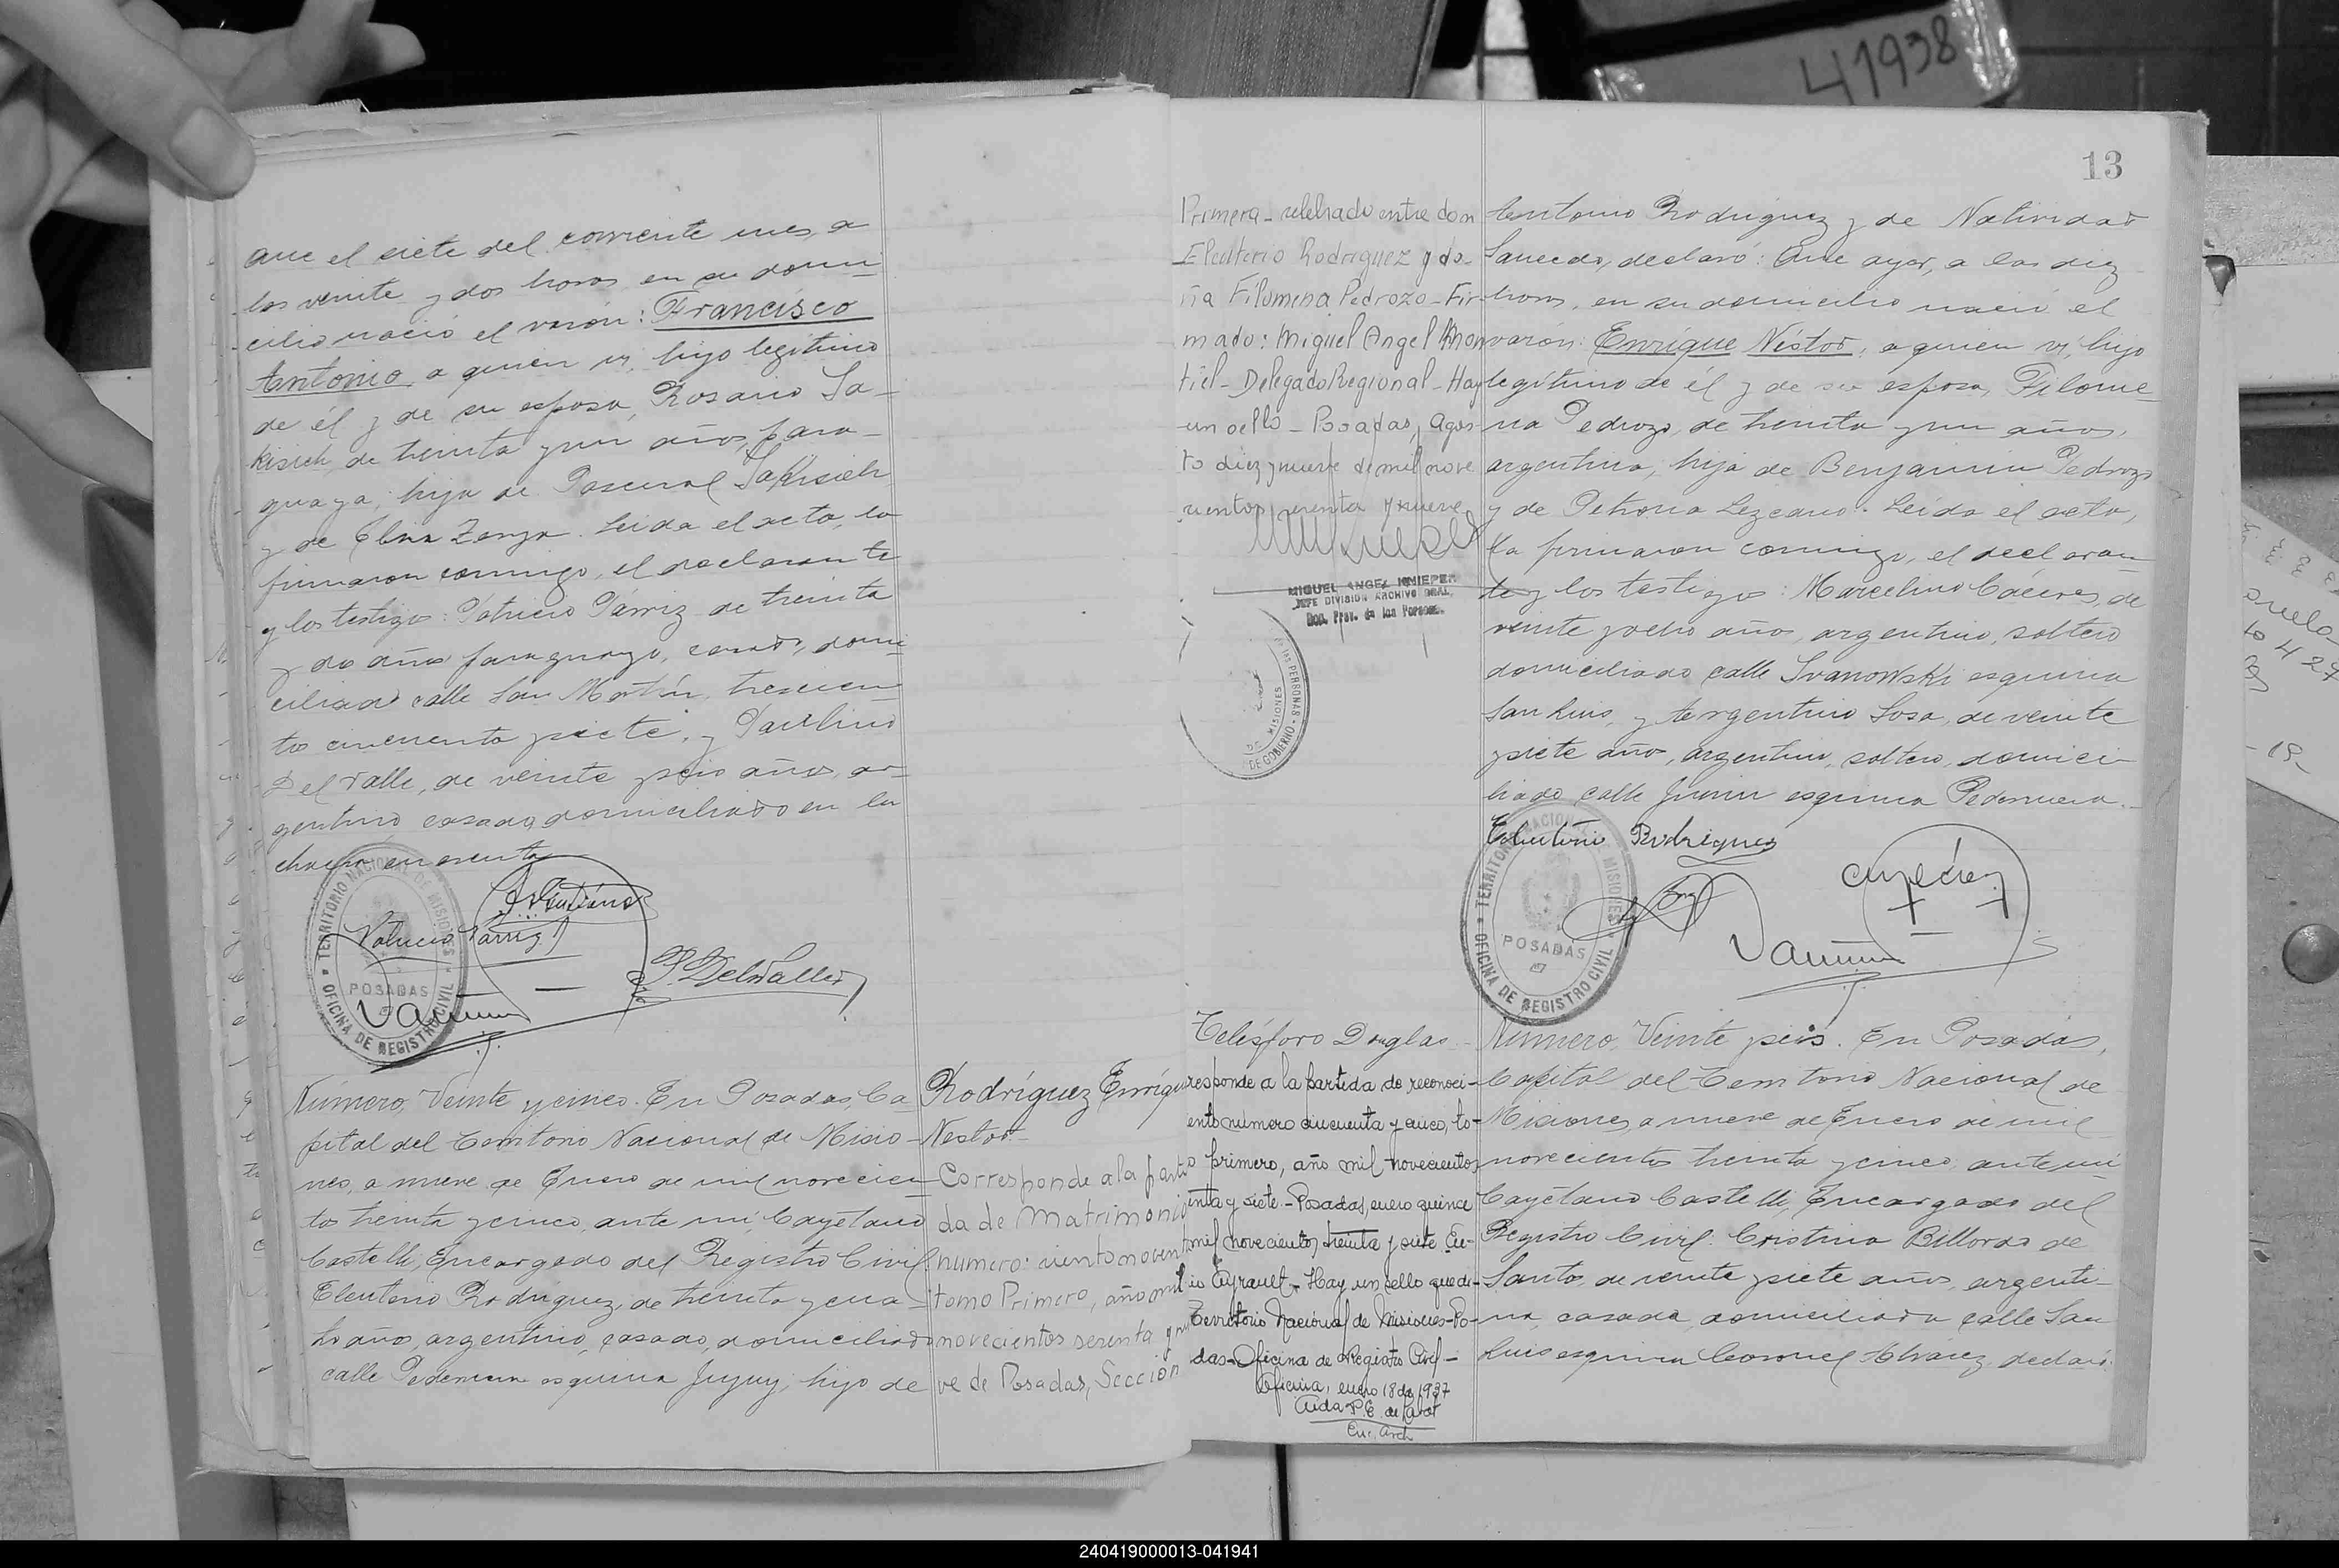 41938
que el siete del corriente mes, a
las veinte y dos horas en su domi
cilio nació el varón: Francisco
Antonio, a quien vi, hijo legítimo
de él y de su esposa, Rosario Sa-
kisich, de treinta y un años, para-
guaya; hija de Pascual Sakisich
y de Elina Zenga. Leída el acta, la
firmaron conmigo, el declarante
y los testigos: Patricio Párriz de treinta
y dos años paraguayo, casado, domi
ciliado calle San Martín, trescien
tos cincuenta y siete, y Paulino
Del Valle, de veinte y seis años, ar-
gentino casado, domiciliado en la
chacra
Patricio Párriz
P. Del Valle
TERRITORIO NACIONAL DE MISIONES
POSADAS
OFICINA DE REGISTRO CIVIL
Número, Veinte y cinco. En Posadas, Ca-
pital del Territorio Nacional de Misio-
nes, a nueve de Enero de mil novecien-
tos treinta y cinco, ante mí, Cayetano
Castelli, Encargado del Registro Civil:
Eleuterio Rodríguez, de treinta y cua-
tro años, argentino, casado, domiciliado
calle Pedernera esquina Jujuy; hijo de
Rodríguez Enrique
Nestor
Corresponde a la parti
da de Matrimonio
numero: ciento noventa
tomo Primero, año mil
novecientos sesenta y nue
ve de Posadas, Sección
13
Primera - celebrado entre don
Eleuterio Rodriguez y do-
ña Filomena Pedrozo - Fir-
mado: Miguel Angel Mon
tiel - Delegado Regional - Hay
un sello - Posadas, Agos-
to diez y nueve de mil nove
cientos sesenta y nueve
MIGUEL ANGEL KNIEPER
JEFE DIVISION ARCHIVO GRAL.
Don. Prov. de las Personas
DE LAS PERSONAS
MISIONES
DE GOBIERNO
Antonio Rodríguez y de Natividad
Saucedo, declaró: Que ayer, a las diez
horas, en su domicilio nació el
varón: Enrique Néstor, a quien vi, hijo
legítimo de él y de su esposa, Filome
na Pedrozo, de treinta y un años,
argentina, hija de Benjamin Pedrozo
y de Petrona Lezcano. Leída el acta,
la firmaron conmigo, el declaran
te y los testigos: Marcelino Cáceres, de
veinte y ocho años, argentino, soltero
domiciliado calle Ivanowski esquina
San Luis, y Argentino Sosa, de veinte
y siete años, argentino, soltero, domici
liado calle Junin esquina Pedernera.
Eleuterio Rodriguez
TERRITORIO NACIONAL DE MISIONES
POSADAS
OFICINA DE REGISTRO CIVIL
Telésforo Douglas
responde a la partida de reconoci-
ento número cincuenta y cinco, to-
o primero, año mil novecientos
inta y siete - Posadas, enero quince
mil novecientos treinta y siete
Eyrault - Hay un sello que di-
Territorio Nacional de Misiones - Po-
das - Oficina de Registro Civil -
Oficina, enero 18 de 1937
Aida P. C. de
Enc. Arch
Número, Veinte y seis. En Posadas,
Capital del Territorio Nacional de
Misiones, a nueve de Enero de mil
novecientos treinta y cinco, ante mí
Cayetano Castelli, Encargado del
Registro Civil: Cristina Billordo de
Santos, de veinte y siete años, argenti-
na, casada, domiciliada calle San
Luis esquina Coronel Alvarez, declaró:
240419000013-041941